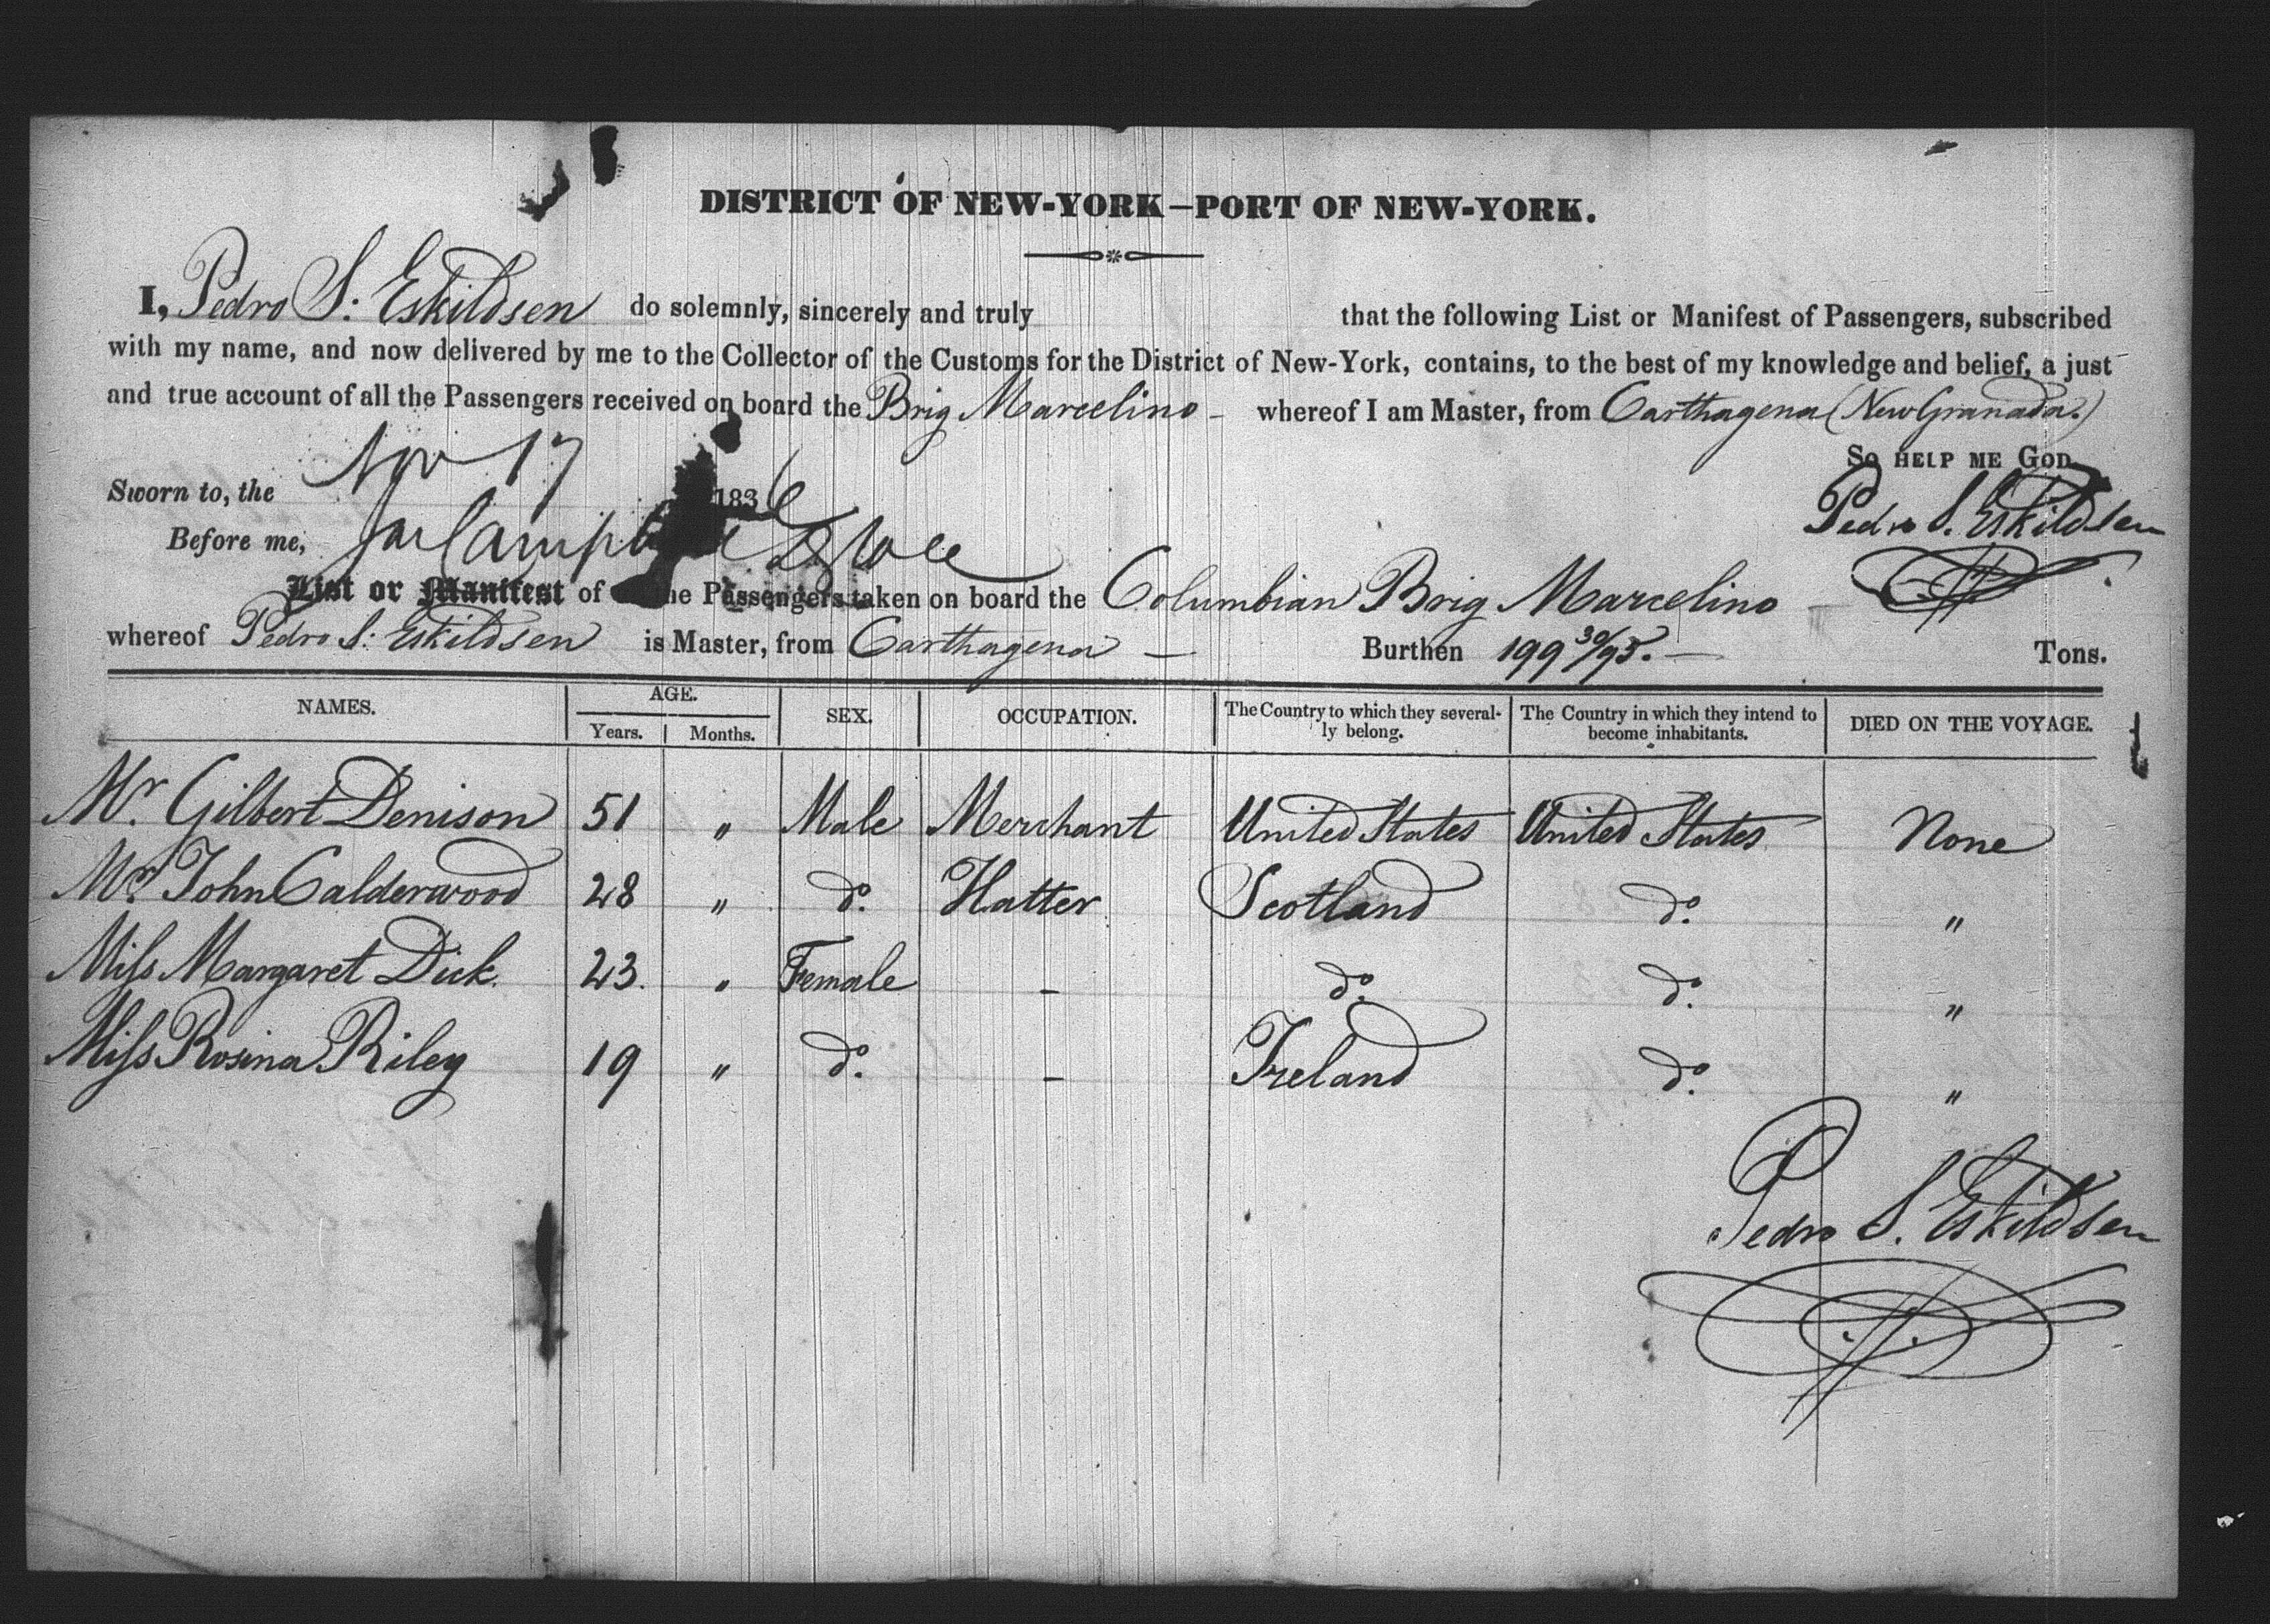 DISTRICT OF NEW-YORK—PORT OF NEW-YORK.
I, Pedro S: Eskildsen do solemnly, sincerely and truly that the following List or Manifest of Passengers, subscribed
with my name, and now delivered by me to the Collector of the Customs for the District of New-York, contains, to the best of my knowledge and belief, a just
and true account of all the Passengers received on board the Brig Marcelino - whereof I am Master, from Carthagena (New Granada.)
So HELP ME GOD.
Sworn to, the Nov 17 1836
Pedro S. Eskildsen
Before me,
List or Manifest of the Passengers taken on board the Columbian Brig Marcelino
whereof Pedro S: Eskildsen is Master, from Carthagena — Burthen 199 30/95. — Tons.
NAMES. AGE. SEX. OCCUPATION. The Country to which they several- The Country in which they intend to DIED ON THE VOYAGE.
Years. Months. ly belong. become inhabitants.
Mr. Gilbert Denison 51 " Male Merchant United States United States None
Mr. John Calderwood 28 " do. Hatter Scotland do. "
Miss Margaret Dick. 23. " Female - do. do. "
Miss Rosina Riley 19 " do. - Ireland do. "
Pedro S. Eskildsen